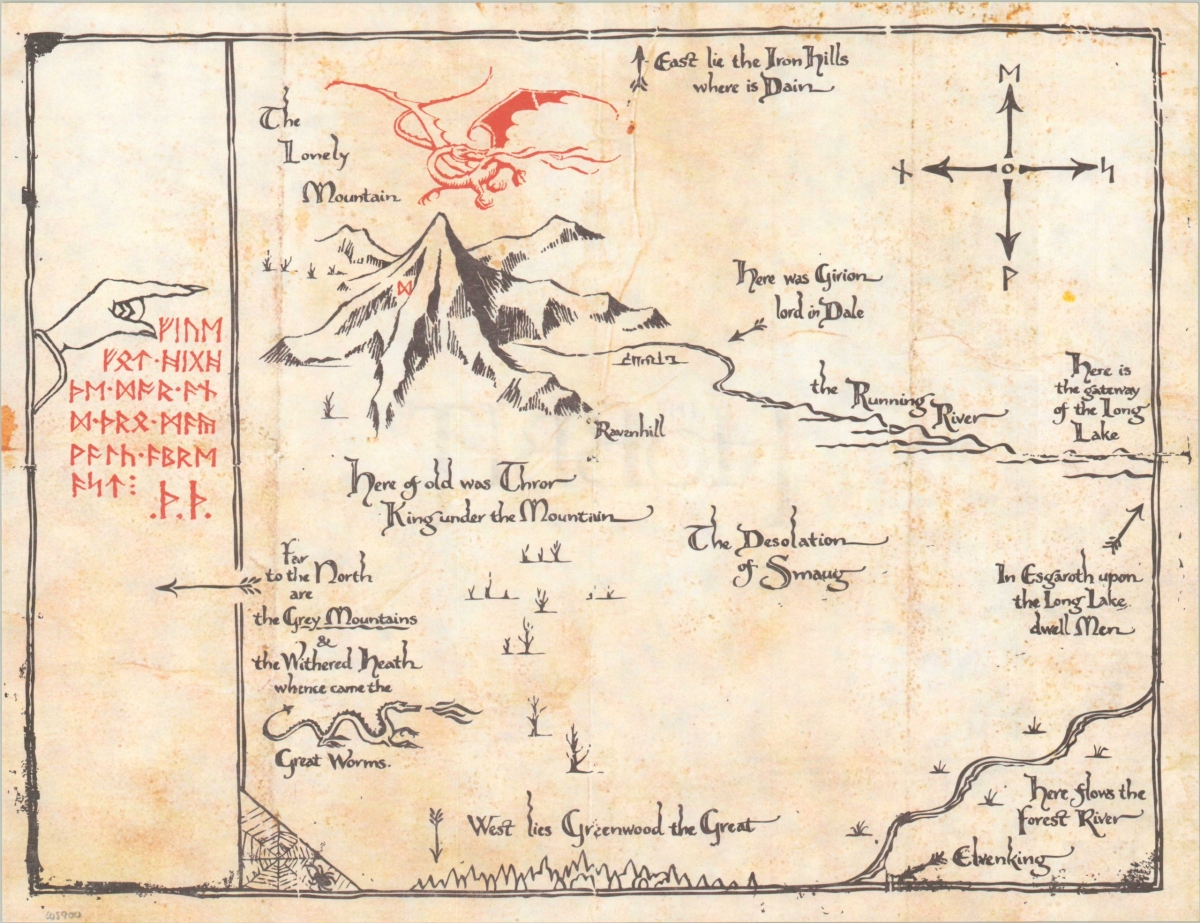 ᛖ
ᚾ ᛋ
ᚹ
East lie the Iron Hills
where is Dain
The
Lonely
Mountain
ᛞ
Here was Girion
lord in Dale
the Running River
Here is
the gateway
of the Long
Lake
Ravenhill
ᚠᛁᚢᛖ
ᚠᚩᛏ·ᚻᛁᚷᚻ
ᚦᛖ·ᛞᚩᚱ·ᚪᚾ
ᛞ·ᚦᚱᛟ·ᛗᚪᚣ
ᚹᚪᛚᚳ·ᚪᛒᚱᛖ
ᚪᛋᛏ⁝
.ᚦ.ᚦ.
Here of old was Thror
King under the Mountain
The Desolation
of Smaug
Far
to the North
are
the Grey Mountains
&
the Withered Heath
whence came the
Great Worms.
In Esgaroth upon
the Long Lake
dwell Men
West lies Greenwood the Great
Here flows the
Forest River
Elvenking